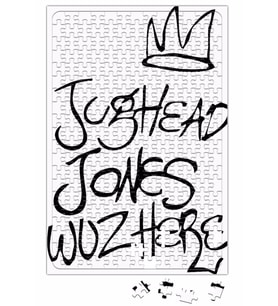 JugHEAD
JONES
WUZ HERE